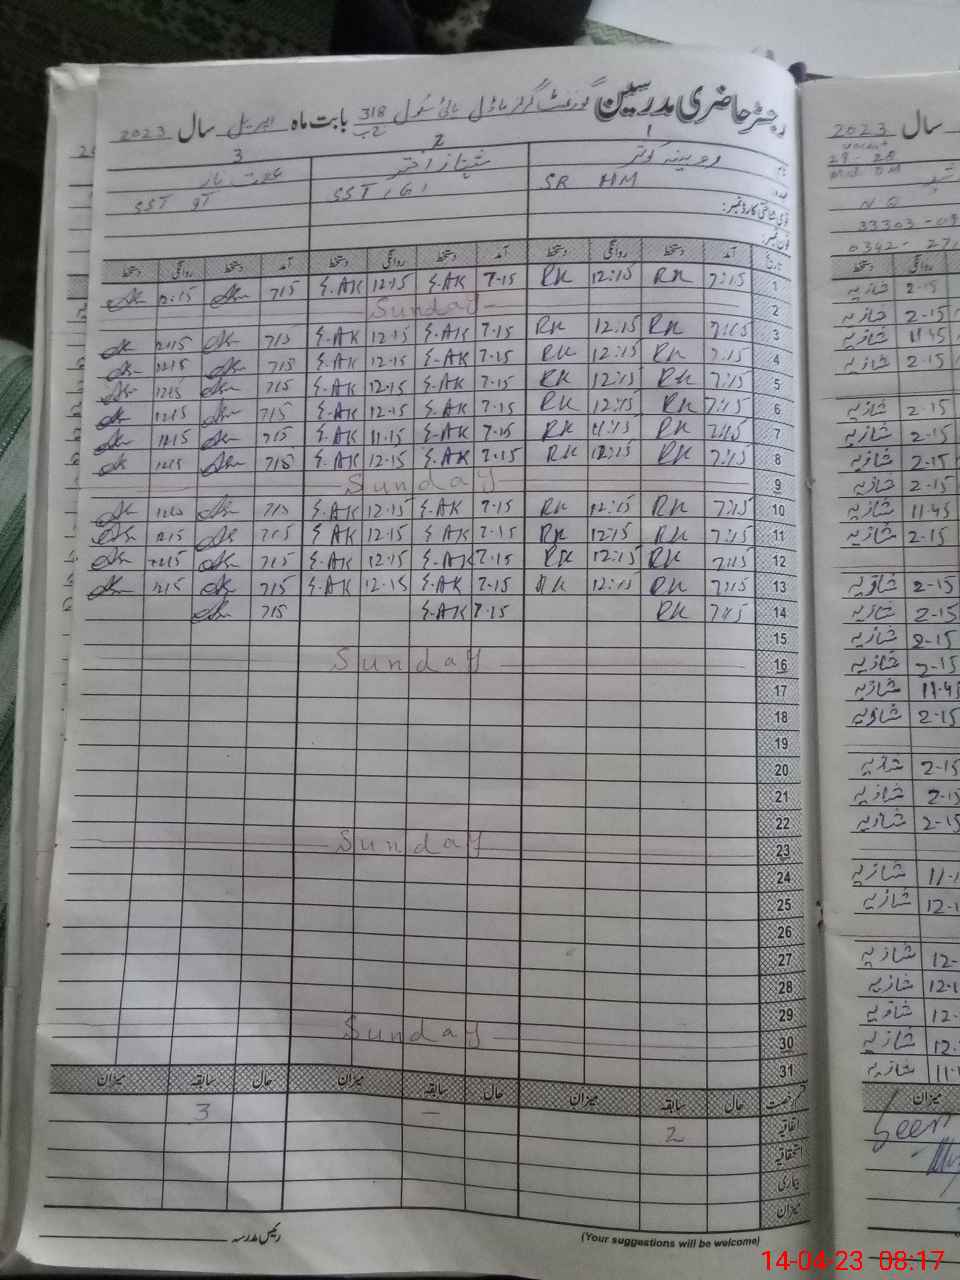 رجسٹر حاضری مدرسین گورنمنٹ گرلز ماڈل ہائی سکول 318 ج ب بابت ماہ اپریل سال 2023
1 2 3
نام روبینہ کوثر شہناز اختر
عہدہ SR HM SST SST
قومی شناختی کارڈ نمبر:
فون نمبر:
تاریخ آمد دستخط روانگی دستخط آمد دستخط روانگی دستخط آمد دستخط روانگی دستخط
1 7:15 RK 12:15 RK 7-15 S.AK 12-15 S.AK 715 12-15
2 Sunday
3 7:15 RK 12:15 RK 7-15 S.AK 12-15 S.AK 715 1215
4 7:15 RK 12:15 RK 7-15 S.AK 12-15 S.AK 715 1215
5 7:15 RK 12:15 RK 7-15 S.AK 12-15 S.AK 715 1215
6 7:15 RK 12:15 RK 7-15 S.AK 12-15 S.AK 715 1215
7 7:15 RK 11:15 RK 7-15 S.AK 11-15 S.AK 715 1115
8 7:15 RK 12:15 RK 7-15 S.AK 12-15 S.AK 715 1215
9 Sunday
10 7:15 RK 12:15 RK 7-15 S.AK 12-15 S.AK 715
11 7:15 RK 12:15 RK 7-15 S.AK 12-15 S.AK 715 1215
12 7:15 RK 12:15 RK 7-15 S.AK 12-15 S.AK 715 1215
13 7:15 RK 12:15 RK 7-15 S.AK 12-15 S.AK 715 1215
14 7:15 RK 7-15 S.AK 715
15
16 Sunday
17
18
19
20
21
22
23 Sunday
24
25
26
27
28
29
30 Sunday
31
قسم رخصت حال سابقہ میزان حال سابقہ میزان حال سابقہ میزان
اتفاقیہ 2 — 3
استحقاقیہ
بیماری
میزان
رئیس مدرسہ
(Your suggestions will be welcome)
سال 2023
33303-
0342-
روانگی دستخط
2-15 شازیہ
2-15 شازیہ
11-45 شازیہ
2-15 شازیہ
2-15 شازیہ
2-15 شازیہ
2-15 شازیہ
2-15 شازیہ
11-45 شازیہ
2-15 شازیہ
2-15 شازیہ
2-15 شازیہ
2-15 شازیہ
2-15 شازیہ
11-45 شازیہ
2-15 شازیہ
2-15 شازیہ
2-15 شازیہ
2-15 شازیہ
شازیہ
شازیہ
شازیہ
شازیہ
شازیہ
شازیہ
شازیہ
میزان
Seen
14-04-23 08:17